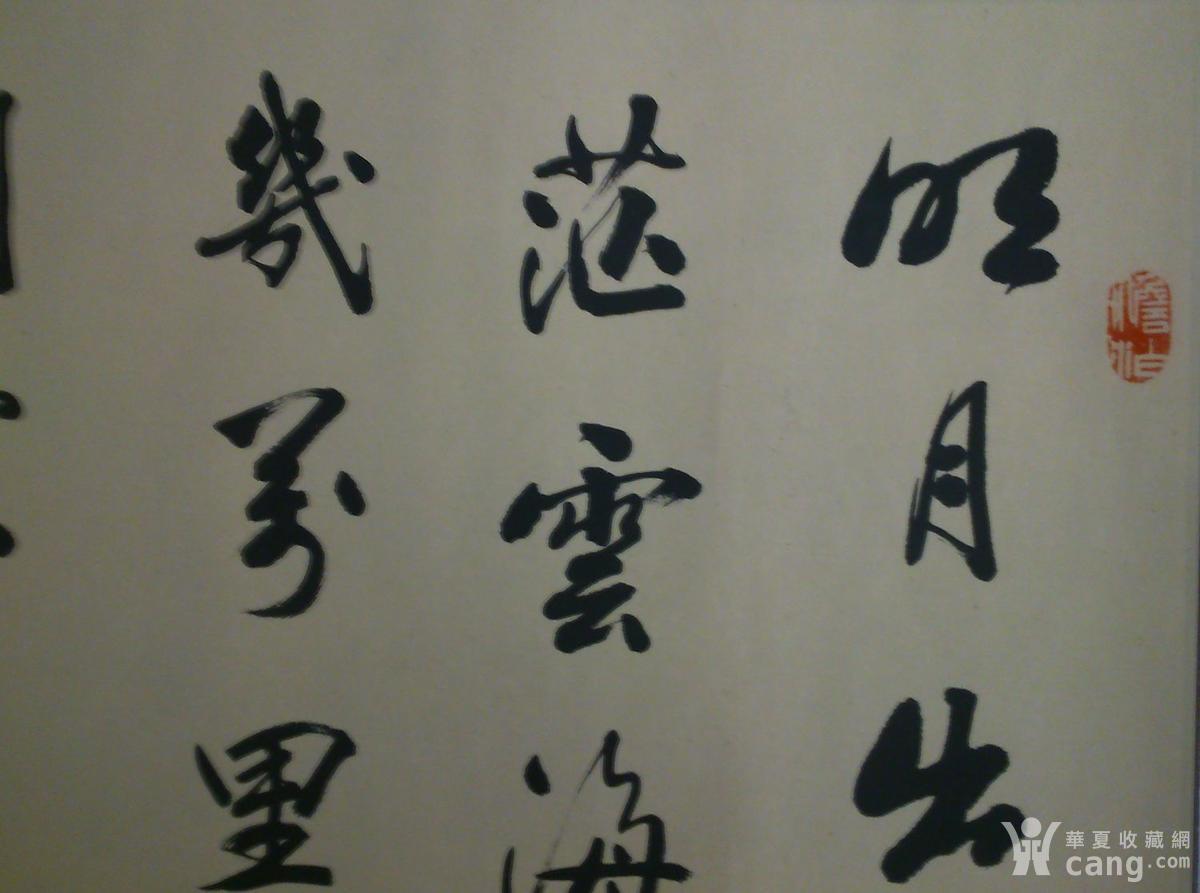 明月出
茫雲海
幾萬里
華夏收藏網
cang.com